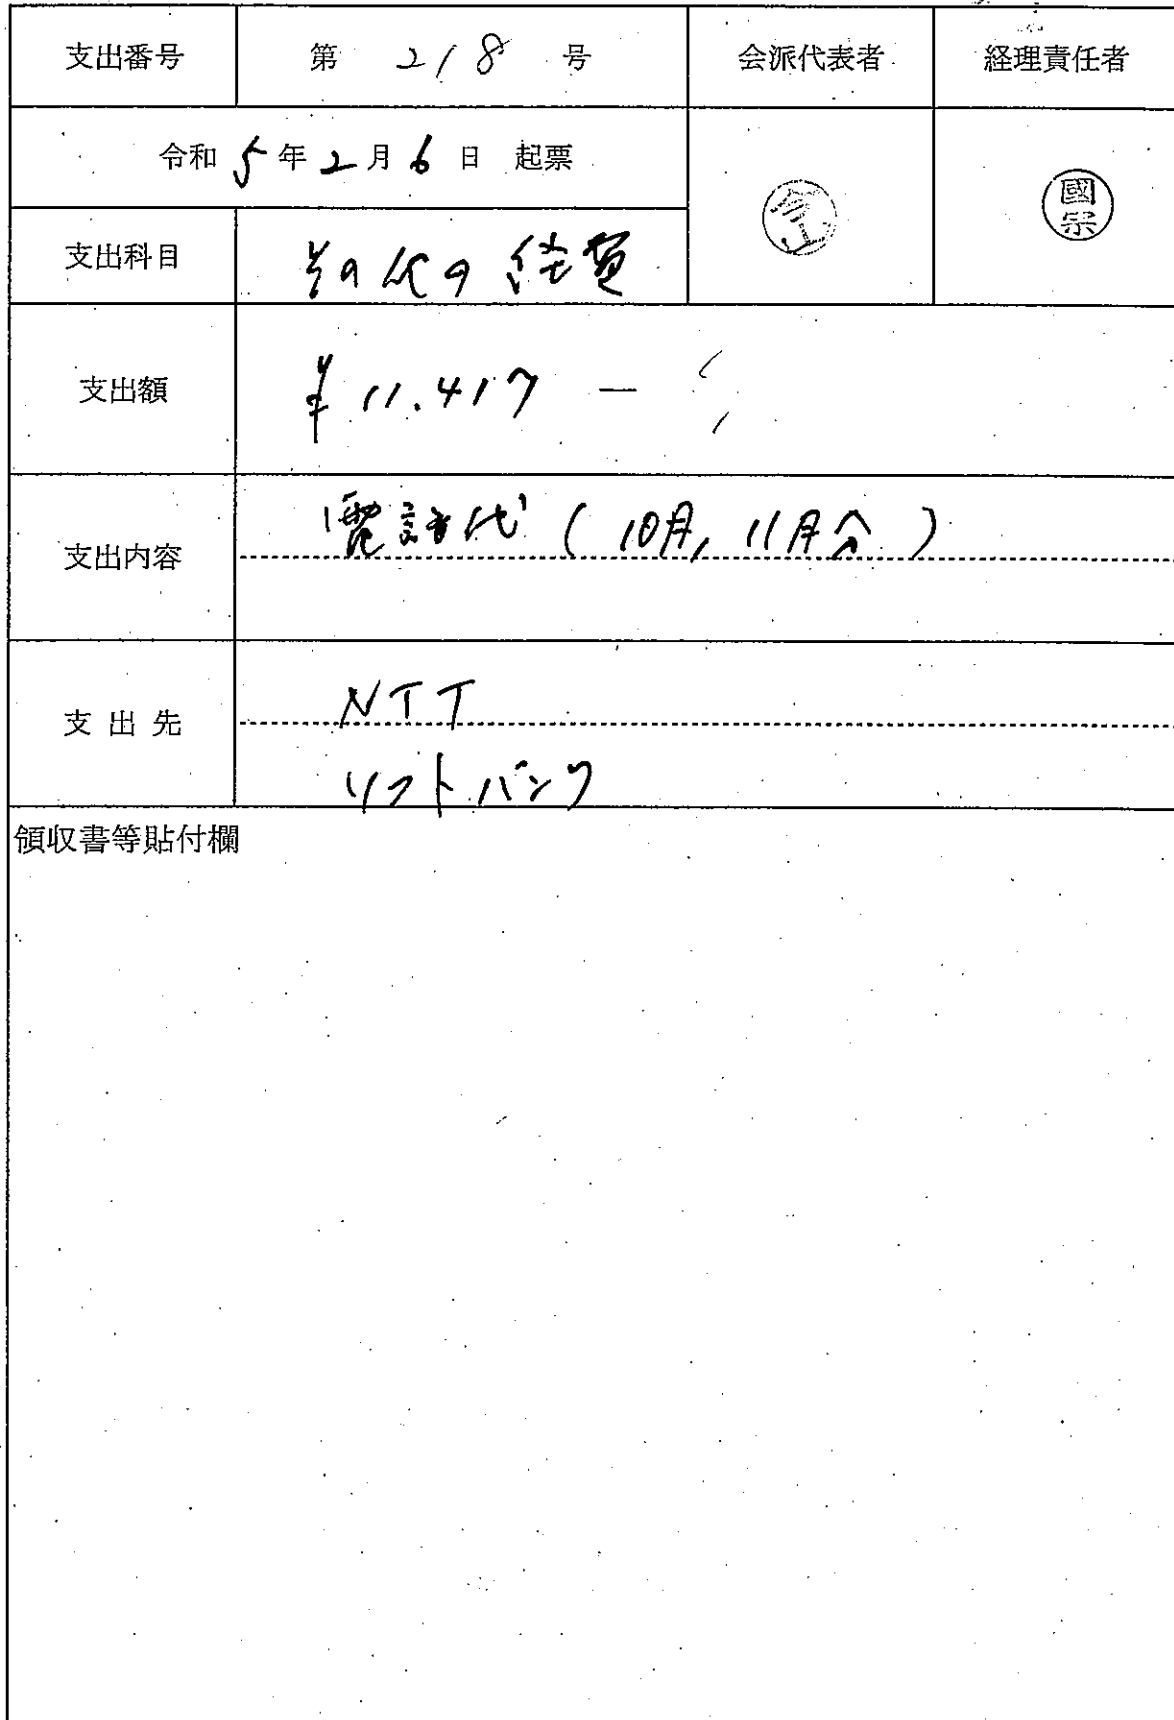 支出番号 第 218 号 会派代表者 経理責任者
令和 5 年 2 月 6 日 起票
國宗
支出科目 その他の経費
支出額 ¥11.417 ー
支出内容 電話代 (10月, 11月分)
支出先 NTT
ソフトバンク
領収書等貼付欄